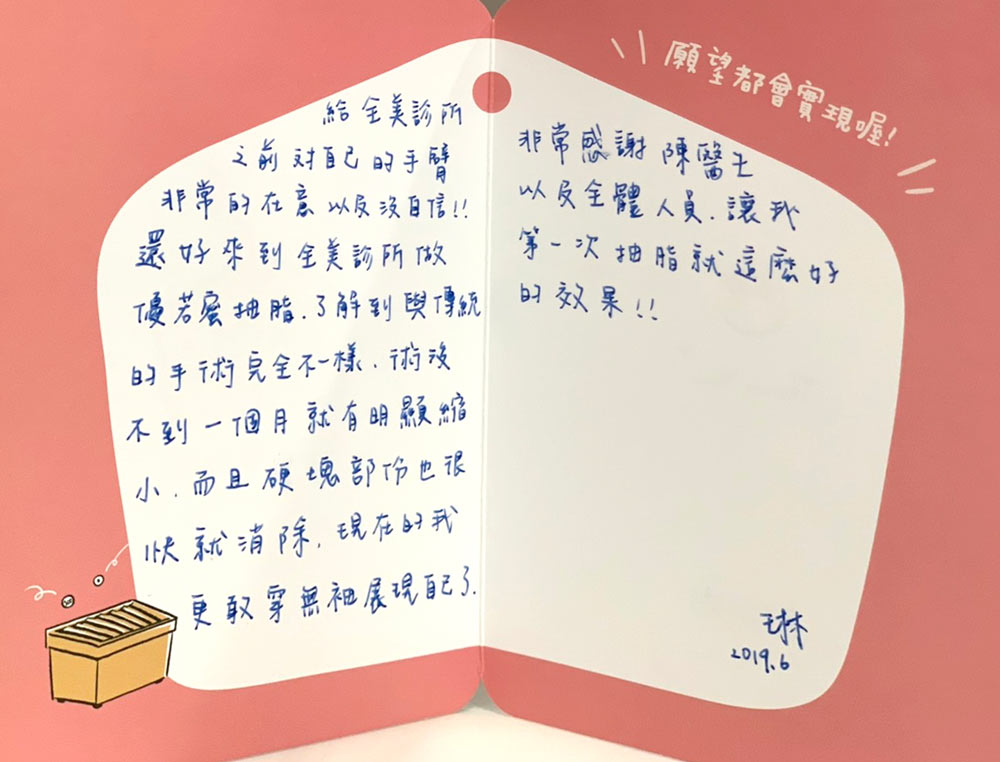 願望都會實現喔!
給 全美診所
之前對自己的手臂
非常的在意以及沒自信!!
還好來到全美診所做
優若蜜抽脂.了解到與傳統
的手術完全不一樣.術後
不到一個月就有明顯縮
小.而且硬塊部份也很
快就消除.現在的我
更敢穿無袖展現自己了.
非常感謝陳醫生
以及全體人員.讓我
第一次抽脂就這麼好
的效果!!
2019.6